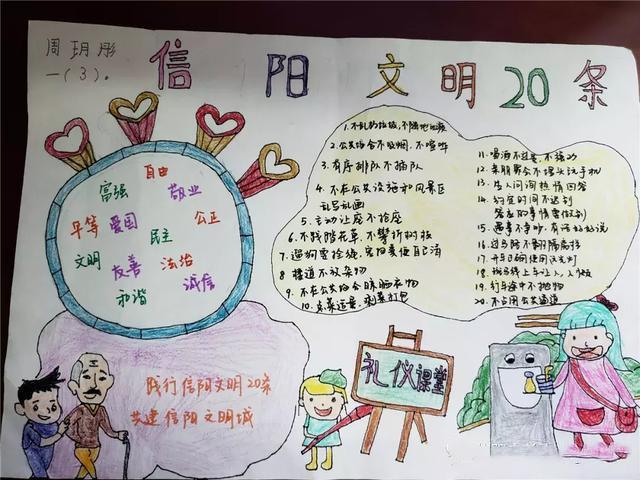 周玥彤
一(3)。
信阳文明20条
自由
富强
敬业
平等
爱国
公正
民主
文明
友善
法治
诚信
和谐
践行信阳文明20条
共建信阳文明城
1.不乱扔垃圾,不随地吐痰
2.公共场合不吸烟,不喧哗
3.有序排队不插队
4.不在公共设施和风景区
乱写乱画
5.主动让座不抢座
6.不践踏花草,不攀折树枝
7.遛狗要拴绳,宠物粪便自己清
8.楼道不放杂物
9.不在公共场合晾晒衣物
10.点菜适量,剩菜打包
11.喝酒不过量,不劝
12.亲朋聚会不埋头玩手机
13.生人问询热情回答
14.约定时间不迟到
答应的事情要做到
15.遇事不争吵,有话好好说
16.过马路不翻隔离栏
17.开车
18.斑马线上车让人,人
19.行车途中不抛物
20.不占用公共通道
礼仪课堂